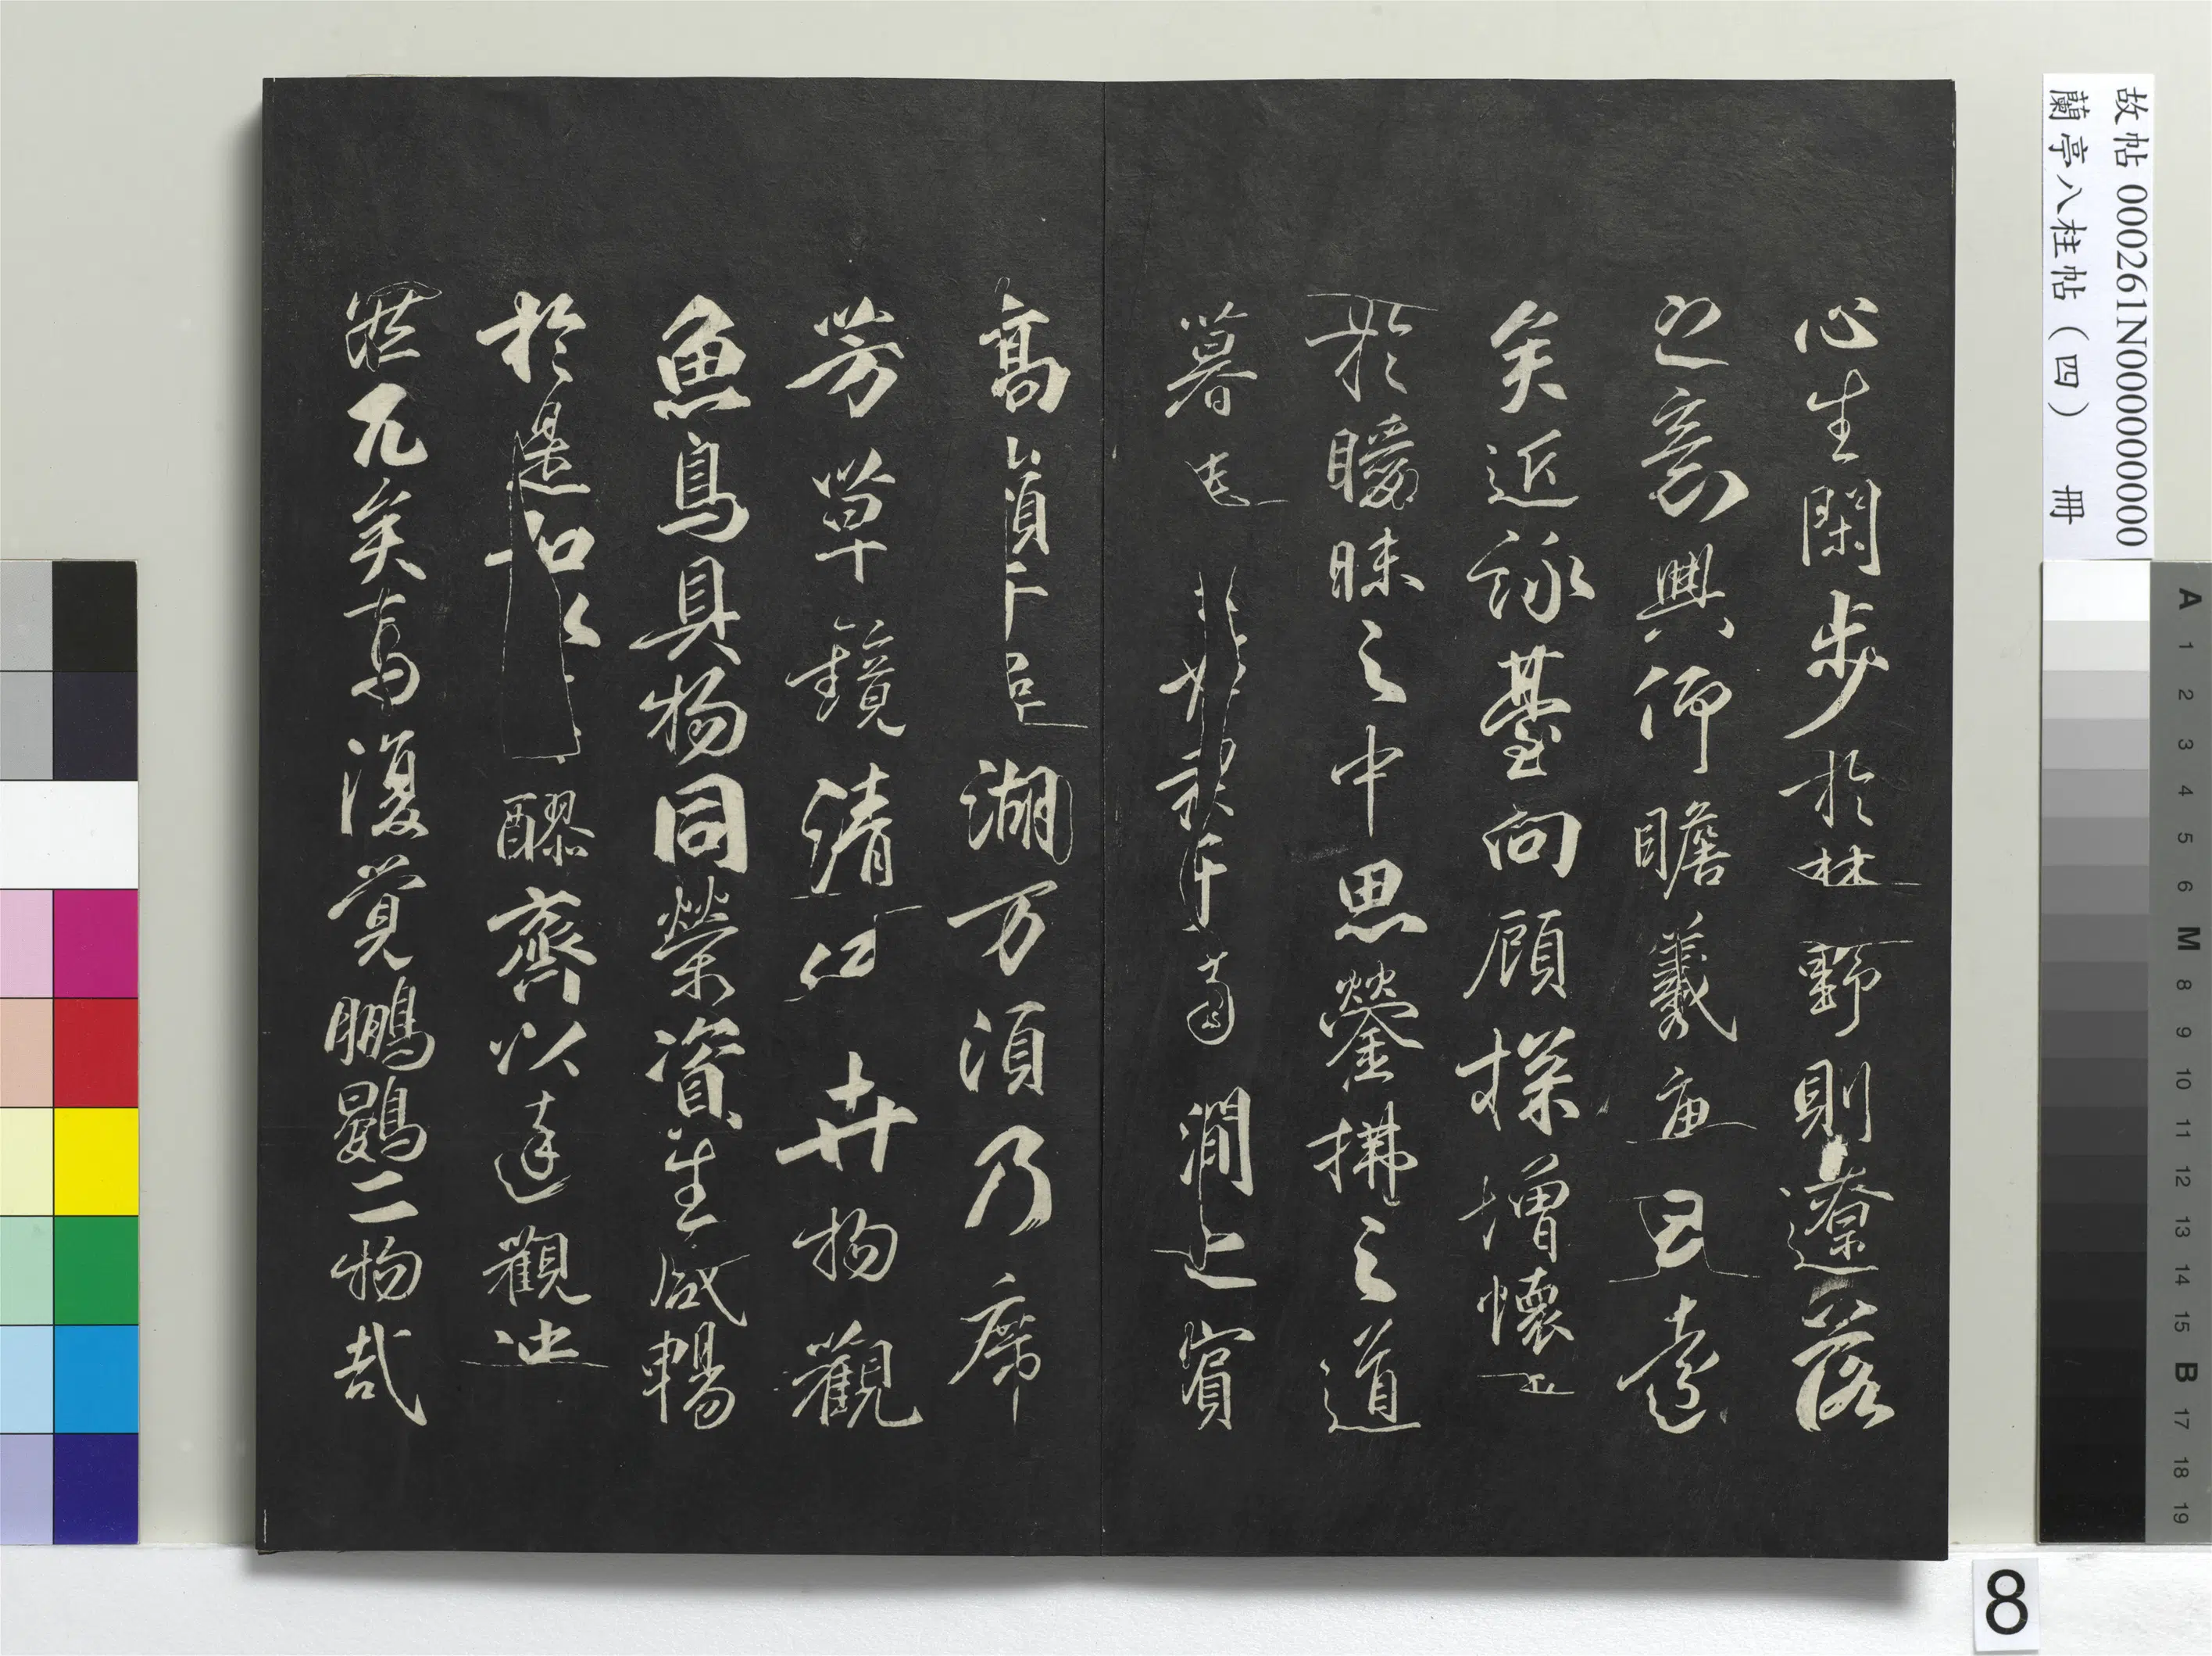 故帖 000261N000000000
蘭亭八柱帖（四） 冊
心生閑步於林野則遼落
之意興仰瞻羲遠
矣近詠臺向顧探增懷
於曖昧之中思鎣拂之道
暮澗上賓
高湖万須乃席
芳草鏡清卉物觀
魚鳥具物同榮資生咸暢
於是和醪齊以達觀
兀矣焉復覺鵬鷃二物哉
A 1 2 3 4 5 6 M 8 9 10 11 12 13 14 15 B 17 18 19
8